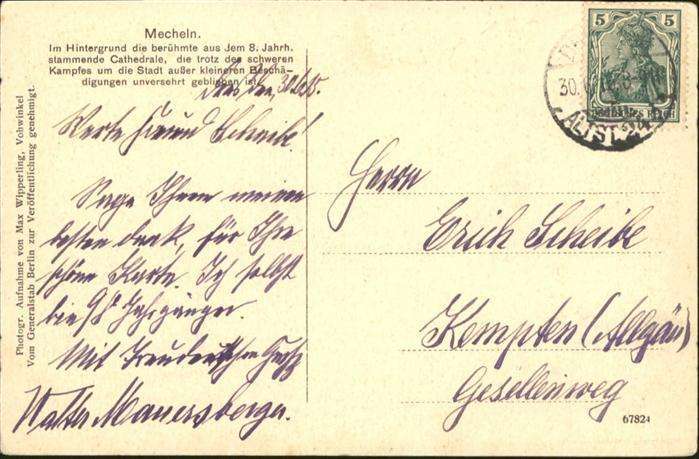 Mecheln.
Im Hintergrund die berühmte aus dem 8. Jahrh.
stammende Cathedrale, die trotz des schweren
Kampfes um die Stadt außer kleineren Beschä-
digungen unversehrt geblieben ist.
Photogr. Aufnahme von Max Wipperling, Vohwinkel
Vom Generalstab Berlin zur Veröffentlichung genehmigt.
Werte Freund Scheibe!
Sage Ihnen meinen
besten dank, für Ihre
schöne Karte. Ich selbst
bin 98 Jahrgänger.
Mit Treudeutschem Gruß
Walter Mauersberger.
5 5
Deutsches Reich
30.
ALTST. 24
Herrn
Erich Scheibe
Kempten (Allgäu)
Gesellenweg
67824